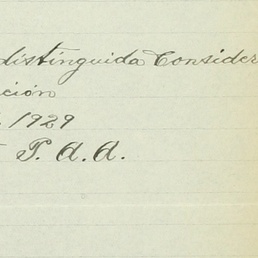 distinguida Consider
ción
1929
P. A. A.